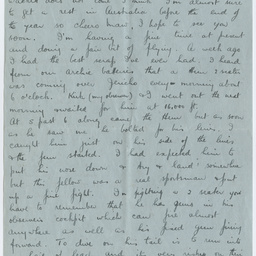 to get a rest in Australia before the end of
the year so cheer Mair, I hope to see you
soon. I'm having a fine time at present
and doing a fair bit of flying. A week ago
I had the best scrap I've ever had. I heard
from our archie batteries that a Hun 2 seater
was coming over Jericho every morning about
6 o'clock. I went out the next
morning & waited for him at 16,000 ft.
At ½ past 6 along came the Hun but as soon
as he saw me he bolted for his lines. I
caught him just on his side of the lines
& the fun started. I had expected him to
put his nose down & try & land somewhere
but this fellow was a real sportsman & put
up a fine fight. In fighting a 2 seater you
have to remember that he has guns in his
observers cockpit which can fire almost
anywhere as well as his fixed guns firing
forward. To dive on his tail is a run into
a hail of lead and its very risky on this